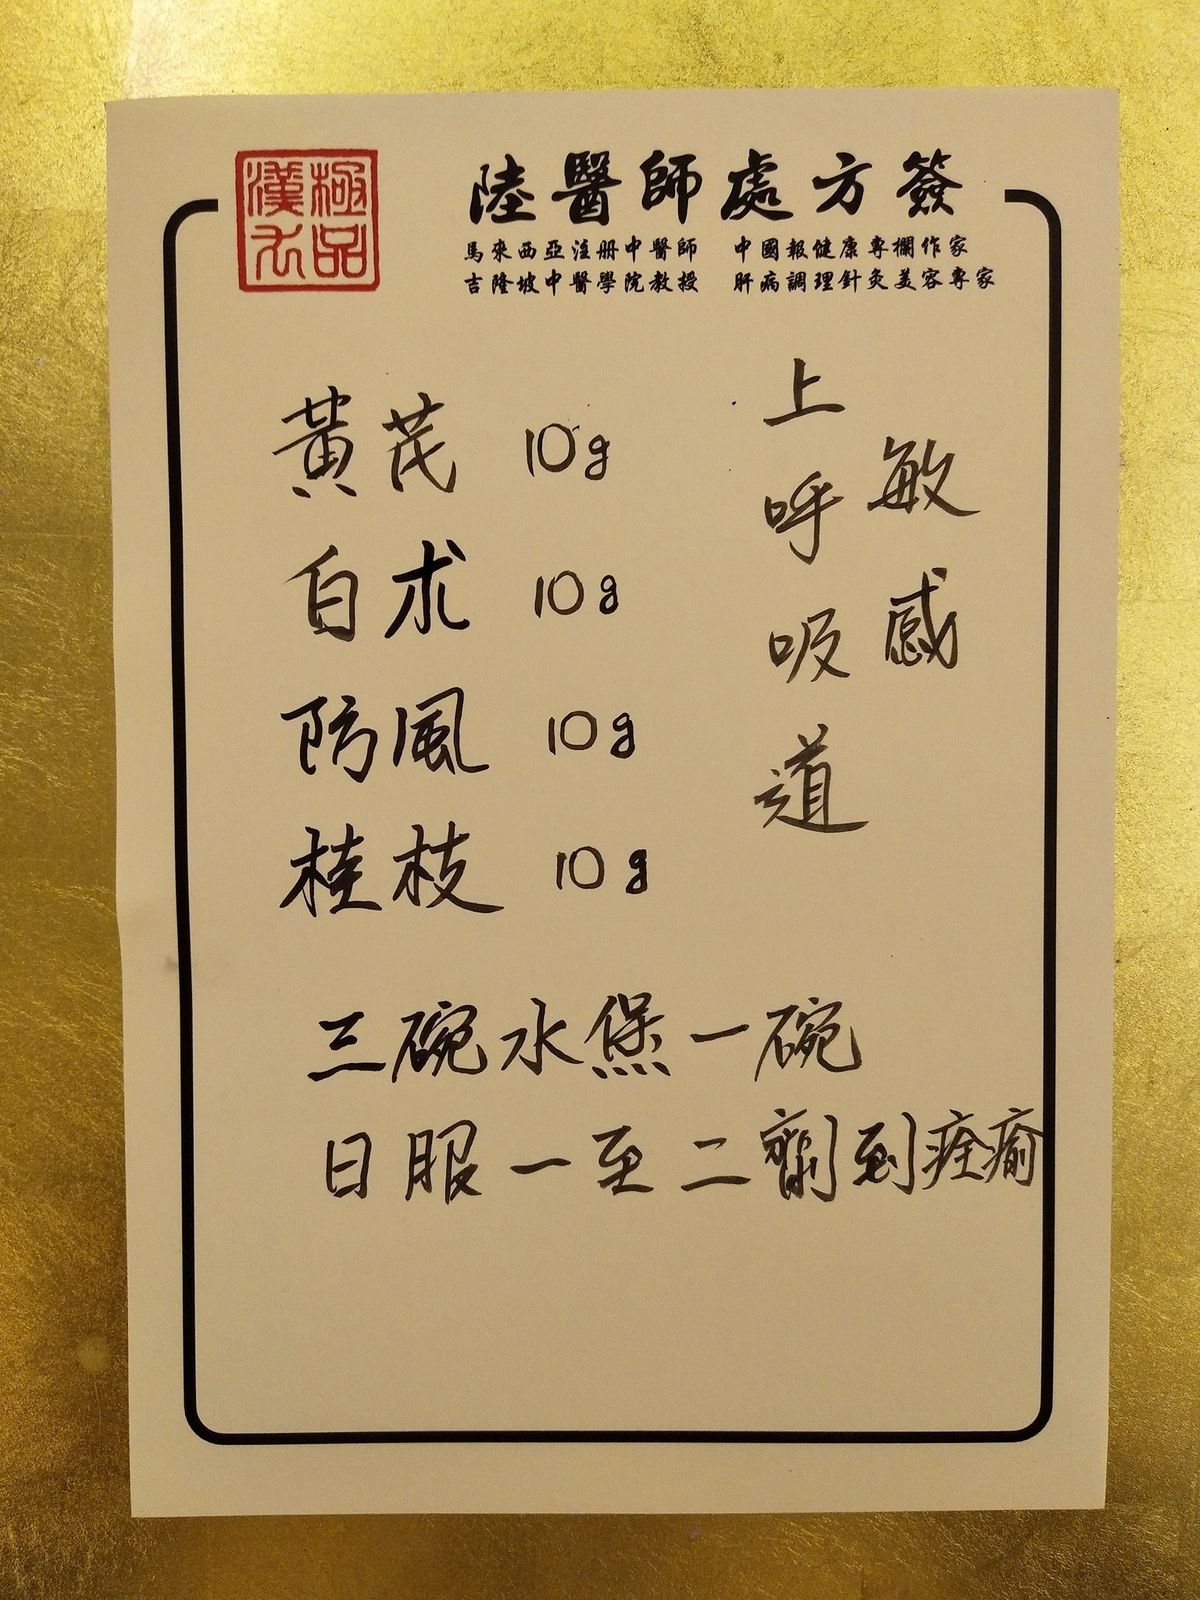 極品
漢方
陸醫師處方簽
馬來西亞注册中醫師 中國報健康專欄作家
吉隆坡中醫學院教授 肝病調理針灸美容專家
敏感
上呼吸道
黃茂 10g
白朮 10g
防風 10g
桂枝 10g
三碗水煲一碗
日服一至二劑到痊瘉